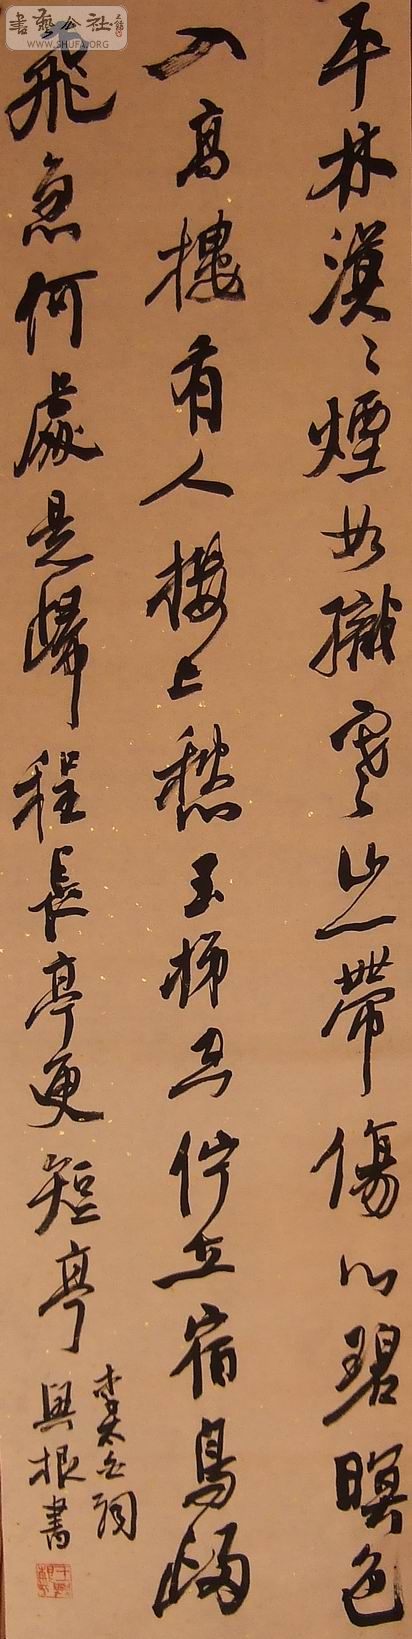 平林漠々煙如織寒山一帶傷心碧暝色
入高樓有人樓上愁玉梯空佇立宿鳥歸
飛急何處是歸程長亭更短亭
李太白詞
興根書
書藝公社
WWW.SHUFA.ORG